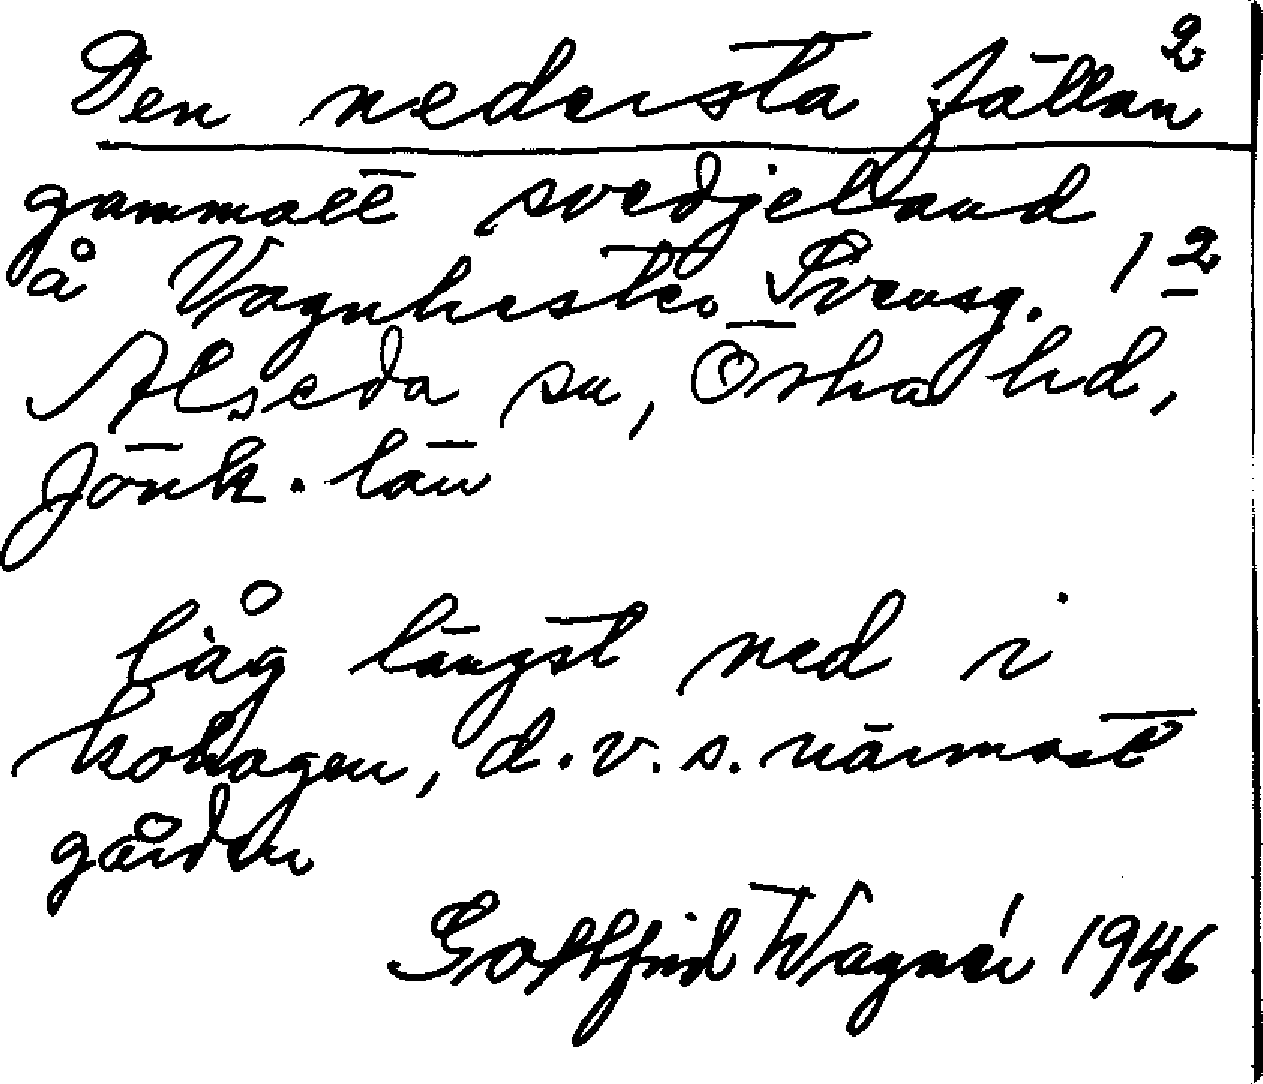 Den nedersta fällan 2
gammalt svedjeland
å Vagnhester Svensg. 1 2
Alseda sn, Östra hd,
Jönk. län
låg längst ned i
kohagen, d.v.s. närmast
gården
Gottfrid Wagnér 1946